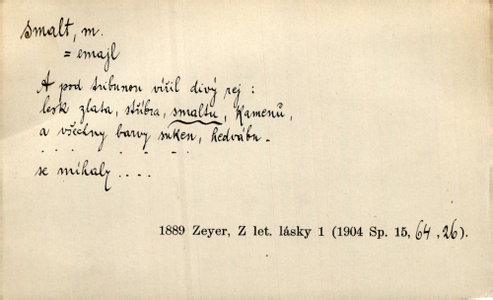 smalt, m.
= emajl
A pod tribunou vířil divý rej :
lesk zlata, stříbra, smaltu, kamenů,
a všechny barvy suken, hedvábu -
. . . . . - -
se míhaly . . . .
1889 Zeyer, Z let. lásky 1 (1904 Sp. 15, 64, 26).